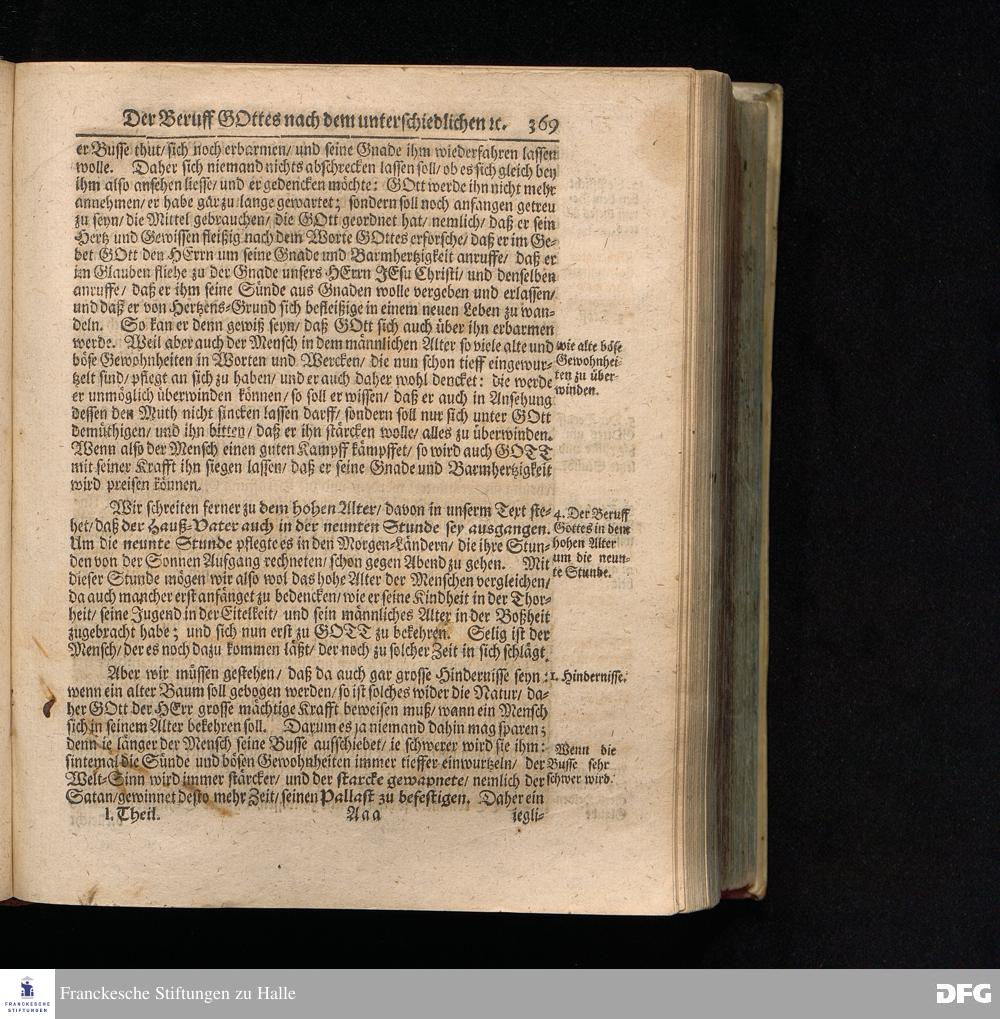 Der Beruff GOttes nach dem unterschiedlichen ꝛc. 369
er Busse thut/ sich noch erbarmen/ und seine Gnade ihm wiederfahren lassen
wolle. Daher sich niemand nichts abschrecken lassen soll/ ob es sich gleich bey
ihm also ansehen liesse/ und er gedencken möchte: GOtt werde ihn nicht mehr
annehmen/ er habe gar zu lange gewartet; sondern soll noch anfangen getreu
zu seyn/ die Mittel gebrauchen/ die GOtt geordnet hat/ nemlich/ daß er sein
Hertz und Gewissen fleißig nach dem Worte GOttes erforsche/ daß er im Ge-
bet GOtt den HErrn um seine Gnade und Barmhertzigkeit anruffe/ daß er
im Glauben fliehe zu der Gnade unsers HErrn JEsu Christi/ und denselben
anruffe/ daß er ihm seine Sünde aus Gnaden wolle vergeben und erlassen/
und daß er von Hertzens-Grund sich befleißige in einem neuen Leben zu wan-
deln. So kan er denn gewiß seyn/ daß GOtt sich auch über ihn erbarmen
werde. Weil aber auch der Mensch in dem männlichen Alter so viele alte und
böse Gewohnheiten in Worten und Wercken/ die nun schon tieff eingewur-
tzelt sind/ pflegt an sich zu haben/ und er auch daher wohl dencket: die werde
er unmöglich überwinden können/ so soll er wissen/ daß er auch in Ansehung
dessen den Muth nicht sincken lassen darff/ sondern soll nur sich unter GOtt
demüthigen/ und ihn bitten/ daß er ihn stärcken wolle/ alles zu überwinden.
Wenn also der Mensch einen guten Kampff kämpffet/ so wird auch GOTT
mit seiner Krafft ihn siegen lassen/ daß er seine Gnade und Barmhertzigkeit
wird preisen können.
wie alte böse
Gewohnhei-
ten zu über-
winden.
Wir schreiten ferner zu dem hohen Alter/ davon in unserm Text ste-
het/ daß der Hauß-Vater auch in der neunten Stunde sey ausgangen.
Um die neunte Stunde pflegte es in den Morgen-Ländern/ die ihre Stun-
den von der Sonnen Aufgang rechneten/ schon gegen Abend zu gehen. Mit
dieser Stunde mögen wir also wol das hohe Alter der Menschen vergleichen/
da auch mancher erst anfänget zu bedencken/ wie er seine Kindheit in der Thor-
heit/ seine Jugend in der Eitelkeit/ und sein männliches Alter in der Boßheit
zugebracht habe; und sich nun erst zu GOTT zu bekehren. Selig ist der
Mensch/ der es noch dazu kommen läßt/ der noch zu solcher Zeit in sich schlägt.
4. Der Beruff
Gottes in dem
hohen Alter
um die neun-
te Stunde.
Aber wir müssen gestehen/ daß da auch gar grosse Hindernisse seyn:
wenn ein alter Baum soll gebogen werden/ so ist solches wider die Natur/ da-
her GOtt der HErr grosse mächtige Krafft beweisen muß/ wann ein Mensch
sich in seinem Alter bekehren soll. Darum es ja niemand dahin mag sparen;
denn ie länger der Mensch seine Busse aufschiebet/ ie schwerer wird sie ihm:
sintemal die Sünde und bösen Gewohnheiten immer tieffer einwurtzeln/ der
Welt-Sinn wird immer stärcker/ und der starcke gewapnete/ nemlich der
Satan/ gewinnet desto mehr Zeit/ seinen Pallast zu befestigen. Daher ein
1. Hindernisse.
Wenn die
Busse sehr
schwer wird.
I. Theil. Aaa iegli-
FRANCKESCHE
STIFTUNGEN
Franckesche Stiftungen zu Halle
DFG